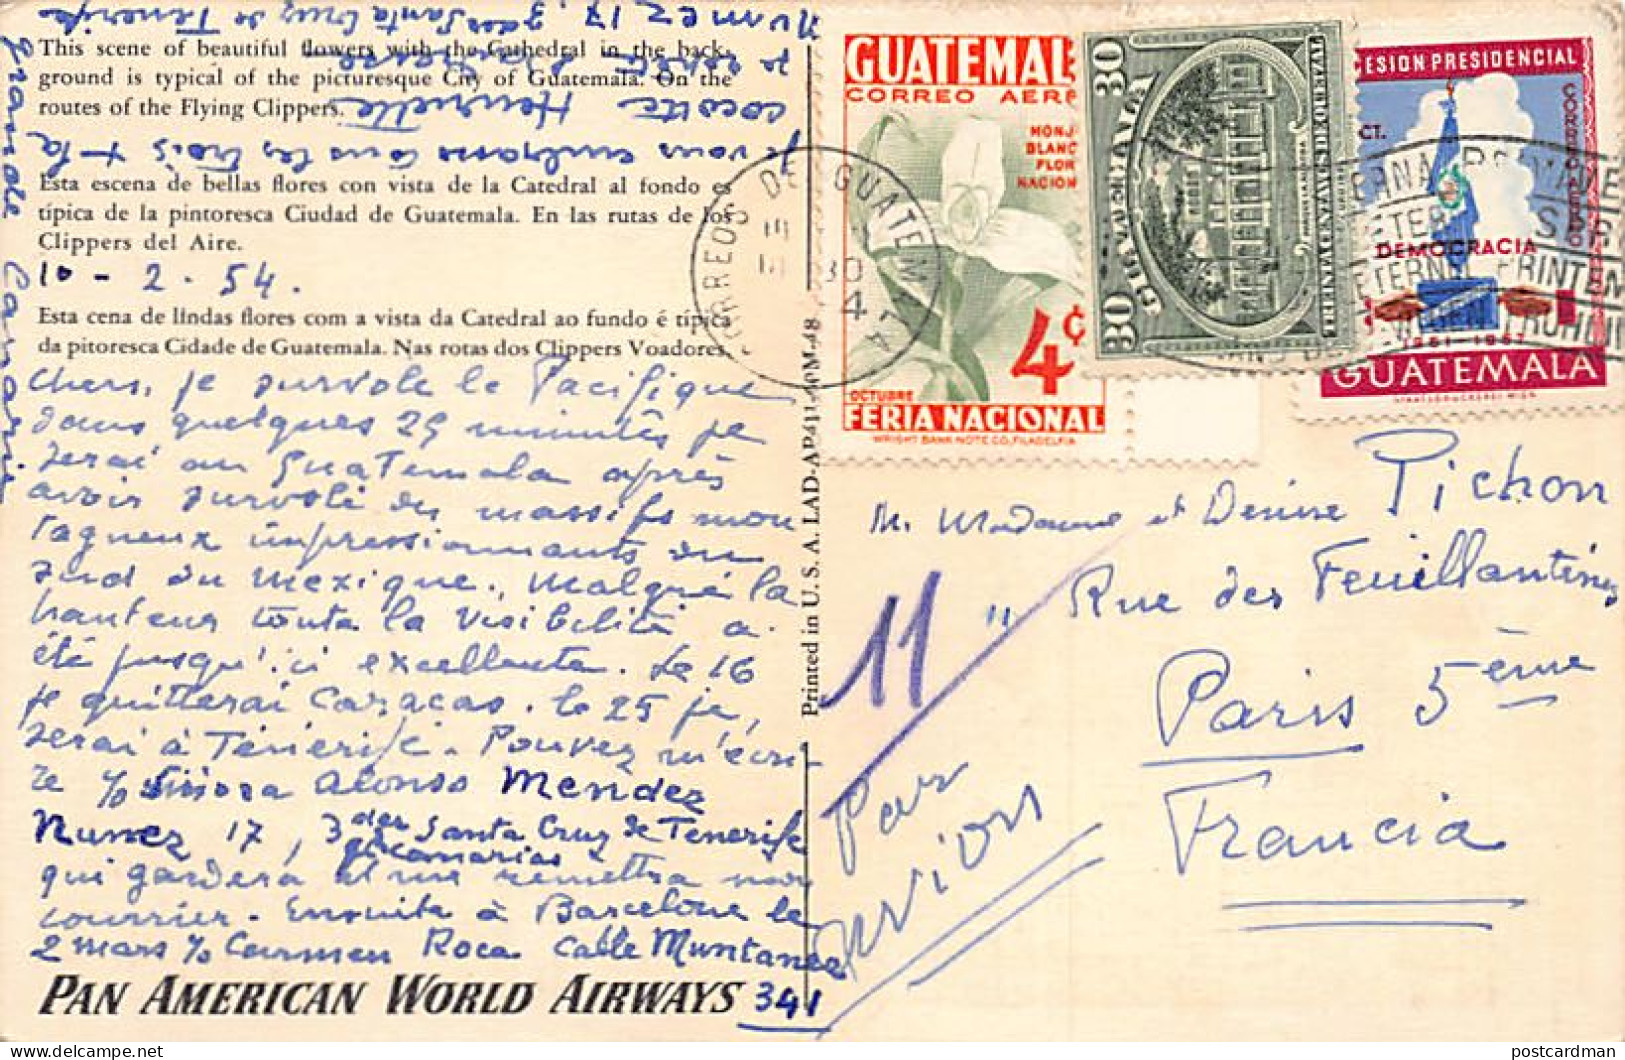 This scene of beautiful flowers with the Cathedral in the back-
ground is typical of the picturesque City of Guatemala. On the
routes of the Flying Clippers.
Esta escena de bellas flores con vista de la Catedral al fondo es
típica de la pintoresca Ciudad de Guatemala. En las rutas de los
Clippers del Aire.
10 - 2 . 54 .
Esta cena de lindas flores com a vista da Catedral ao fundo é típica
da pitoresca Cidade de Guatemala. Nas rotas dos Clippers Voadores.
Chers, je survole le Pacifique
dans quelques 25 minutes je
serai au Guatemala après
avoir survolé des massifs mon
tagneux impressionnants du
sud du Mexique., Malgré la
hauteur toute la visibilité a
été jusqu'ici excellente. Le 16
je quitterai Caracas. le 25 je,
serai à Ténérife. Pouvez m'écri-
re c/o Señora Alonso Mendez
Nunez 17, 3 der Santa Cruz de Tenerife
gd Canarias
qui gardera et me remettra mon
courrier. Ensuite à Barcelone le
2 mars c/o Carmen Roca Calle Muntaner
341
PAN AMERICAN WORLD AIRWAYS
Je vous embrasse tous les trois + ta
cocotte Henriette
Numez 17, 3 der Santa Cruz de Tenerife
Grande Canarie
Printed in U. S. A. LAD-AP411-40M-48
GUATEMAL
CORREO AERE
MONJ
BLANC
FLOR
NACION
4¢
OCTUBRE
FERIA NACIONAL
WRIGHT BANK NOTE CO, FILADELFIA
30
30
GUATEMALA
CESION PRESIDENCIAL
CORREO AEREO
CT.
DEMOCRACIA
1951-1957
GUATEMALA
STAATSDRUCKEREI WIEN
CORREOS DE GUATEMALA
30
M. Madame et Denise Pichon
11 Rue des Feuillantines
Paris 5ème
Francia
11
Par
avion
postcardman